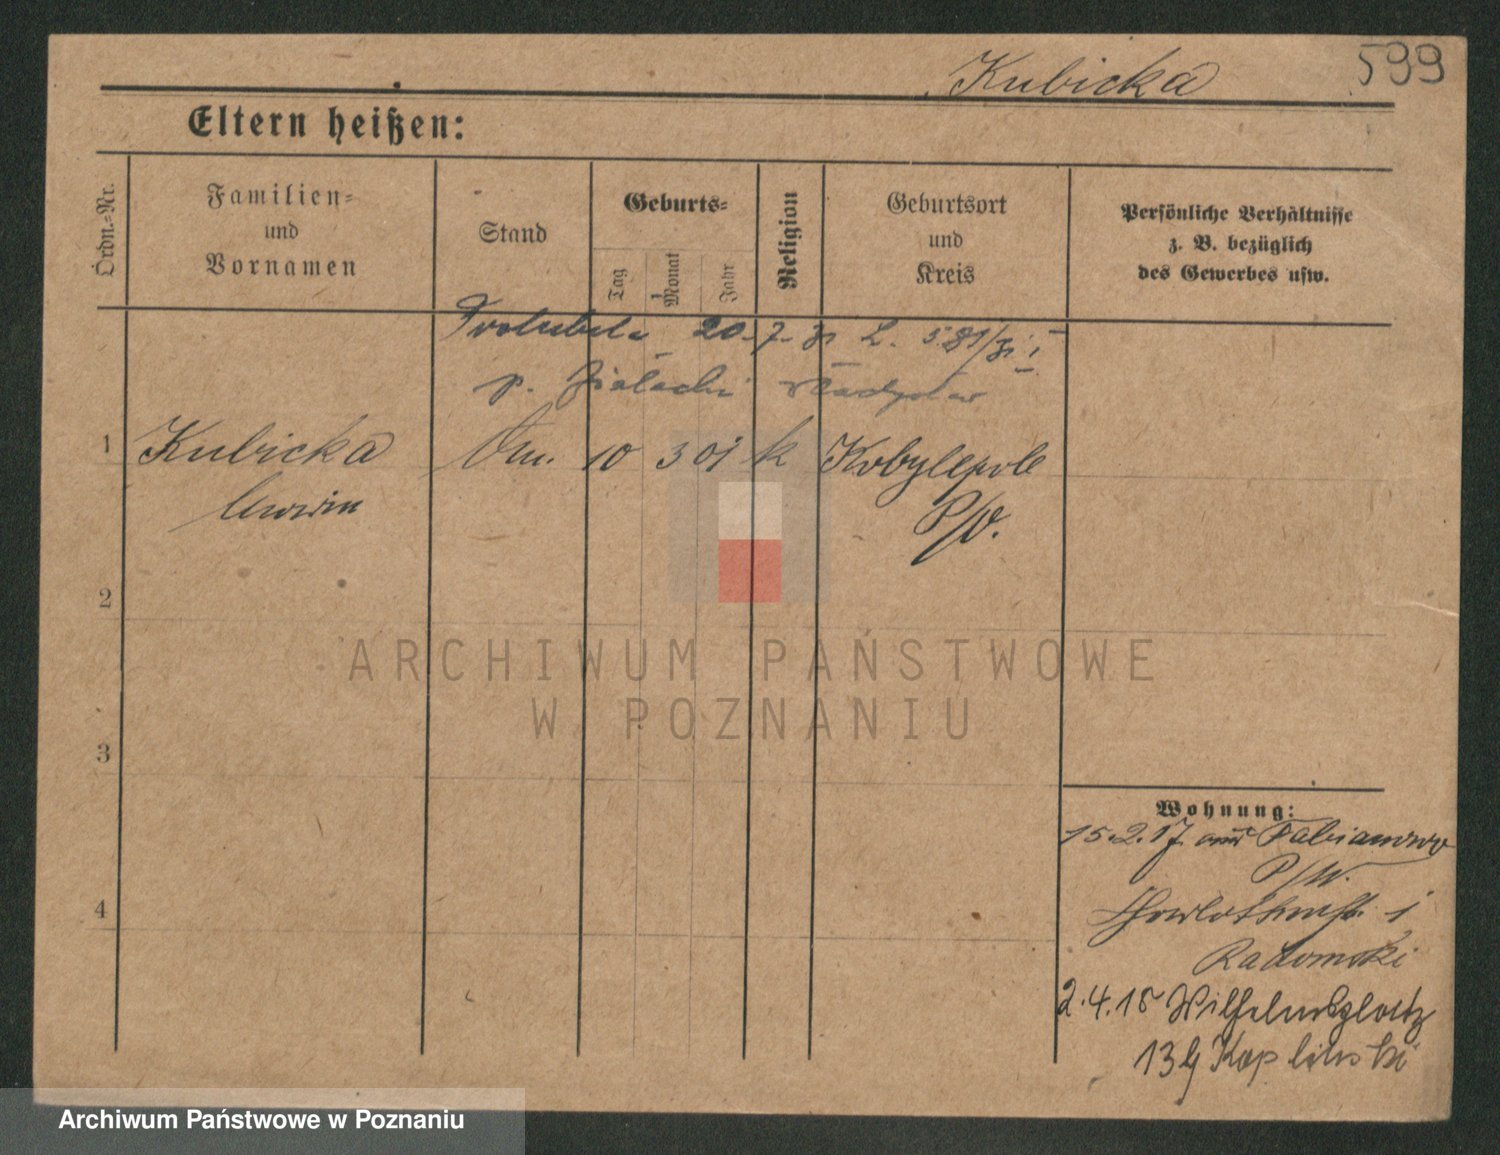 Kubicka
599
Eltern heißen:
Ordn.=Nr.
Familien=
und
Vornamen
Stand
Geburts=
Tag
Monat
Jahr
Religion
Geburtsort
und
Kreis
Persönliche Verhältnisse
z. B. bezüglich
des Gewerbes usw.
20. 7. 31 L. 581/31 I
p. Władysław
1
Kubicka
10 3 01 k
Kobylepole
P/W.
2
3
4
ARCHIWUM PAŃSTWOWE
W POZNANIU
Wohnung:
15.2.17 aus Fabianowo
P/W.
1
Radomski
2.4.18 Wilhelmsplatz
13 Kaplinski
Archiwum Państwowe w Poznaniu